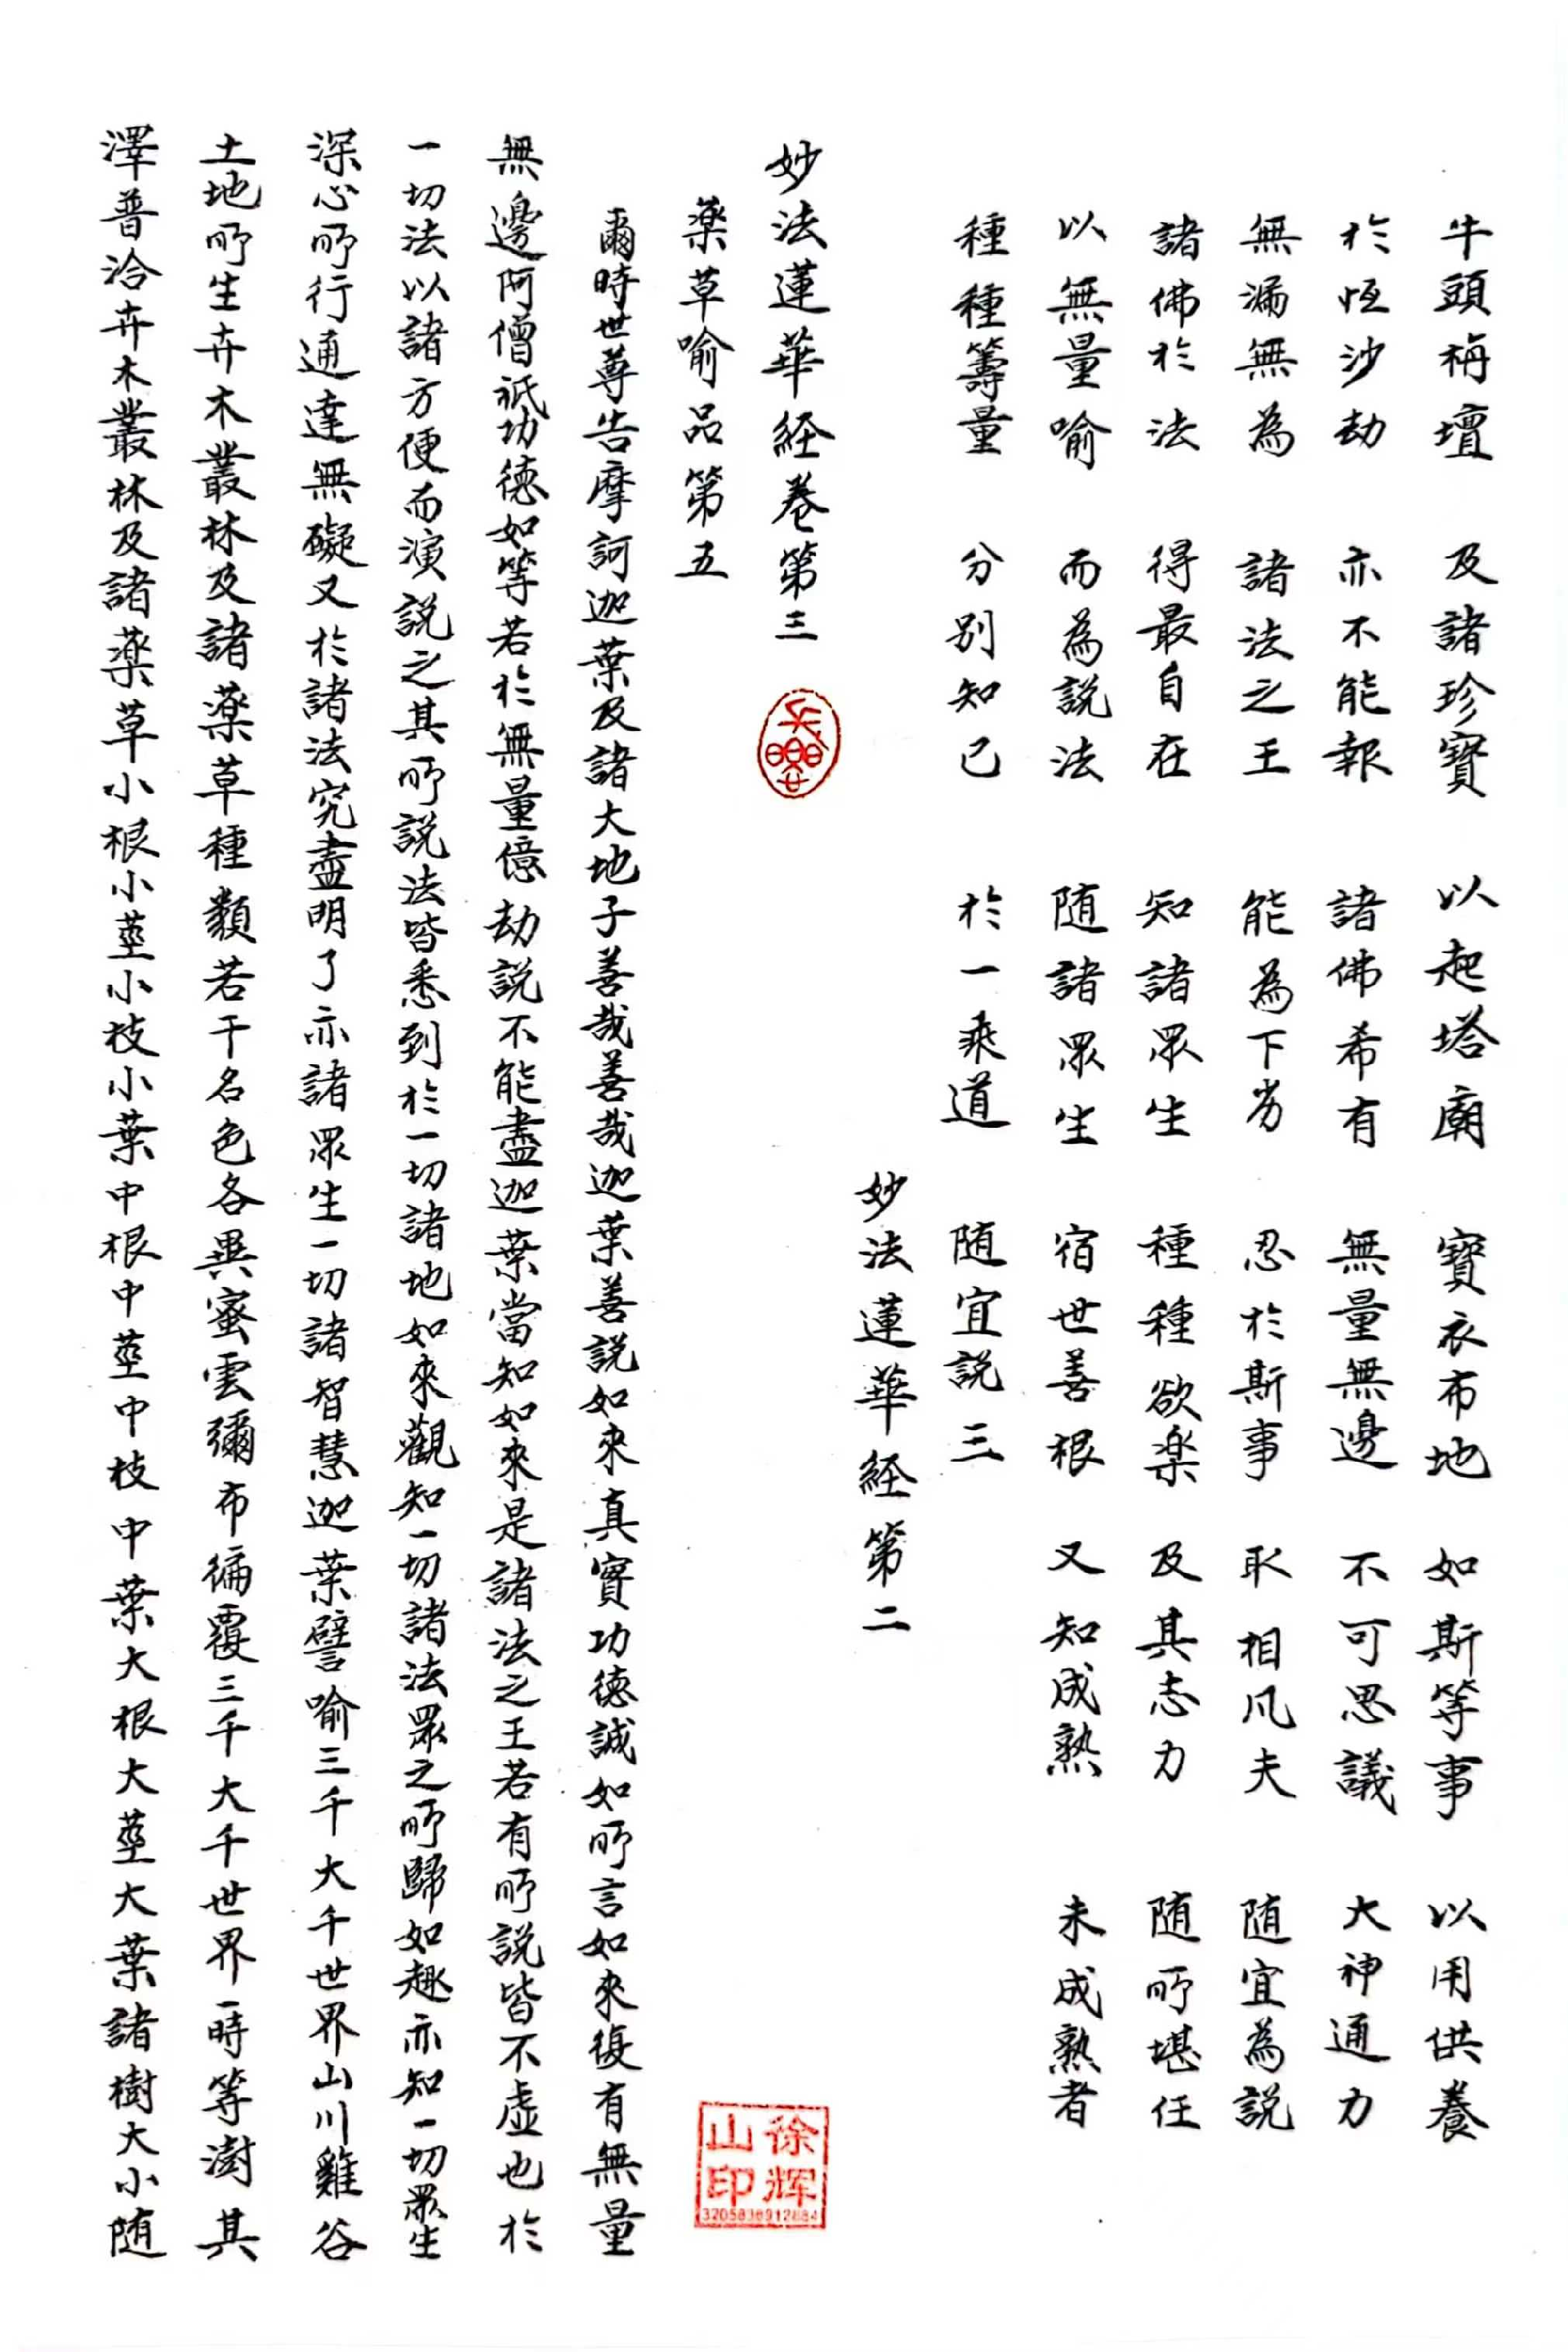 牛頭栴壇 及諸珍寶 以起塔廟 寶衣布地 如斯等事 以用供養
於恆沙劫 亦不能報 諸佛希有 無量無邊 不可思議 大神通力
無漏無為 諸法之王 能為下劣 忍於斯事 取相凡夫 隨宜為説
諸佛於法 得最自在 知諸眾生 種種欲楽 及其志力 隨所堪任
以無量喻 而為説法 隨諸眾生 宿世善根 又知成熟 未成熟者
種種籌量 分別知已 於一乘道 隨宜説三
妙法蓮華経第二
妙法蓮華経卷第三
薬草喻品第五
爾時世尊告摩訶迦葉及諸大地子善哉善哉迦葉善説如來真實功德誠如所言如來復有無量
無邊阿僧祇功德如等若於無量億劫説不能盡迦葉當知如來是諸法之王若有所説皆不虛也於
一切法以諸方便而演説之其所説法皆悉到於一切諸地如來觀知一切諸法眾之所歸如趣亦知一切眾生
深心所行通達無礙又於諸法究盡明了亦諸眾生一切諸智慧迦葉譬喻三千大千世界山川雞谷
土地所生卉木叢林及諸薬草種類若干名色各異蜜雲彌布徧覆三千大千世界一時等澍其
澤普洽卉木叢林及諸薬草小根小莖小枝小葉中根中莖中枝中葉大根大莖大葉諸樹大小隨
徐辉
山印